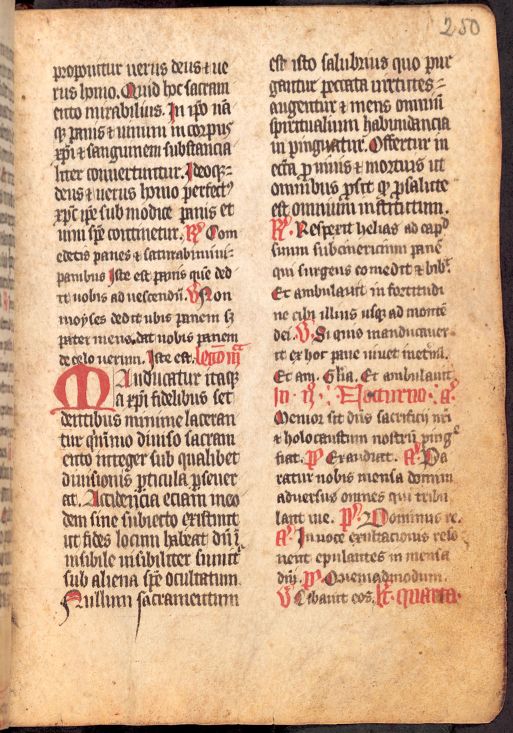 250
proponitur uerus deus ⁊ ue
rus homo. Quid hoc sacram
ento mirabilius. In ip̄o nā
q̨ panis ⁊ uinum in corpus
xp̄i ⁊ sanguinem substancia
liter conuertuntur. Ideoq̨
deus ⁊ uerus homo perfectꝰ
xp̄c ip̄e sub modice panis et
uini sp̄e continetur. R̷ Com
edetis panes ⁊ saturabimini
panibus Iste est panis que ded
it uobis ad uescendū. V̷ Non
moyses dedit ubis panem sʒ
pater meus dat uobis panem
de celo uerum. Iste est. leg̅o iii̅ᵃ
Manducatur itaq̨
a xp̄i fidelibus set
dentibus minime laceran
tur quinimo diuiso sacram
ento integer sub qualibet
diuisionis ꝑticula ꝑseuer
at. Accidencia eciam ineo
dem sine subiecto existunt
ut fides locum habeat dū ī
uisibile inuisibiliter sumitᷣ
sub aliena sp̄e ocultatum.
Nullum sacramentum
est isto salubrius quo pur
gantur peccata uirtutes
augentur ⁊ mens omniū
spiritualium habundancia
in pinguatur. Offertur in
ecc̄a ꝓ uiuis ⁊ mortuis ut
omnibus ꝓsit qͦ ꝓ salute
est omnium institutum.
R̷ Respexit helias ad capᵈ
suum subcinericium panē
qui surgens comedit ⁊ bibᵗ
Et ambulauit in fortitudi
ne cibi illius usq̨ ad montē
dei. V̷ Si quis manducauer
it ex hoc pane uiuet in etn̄ū.
Et am. Gl̄ia. Et ambulauit
In ij̊ Nocturno a̅
Memor sit dūs sacrificii nr̄i
⁊ holocaustum nostrū ping
fiat. p̅s Exaudiat. A̅ Pa
ratur nobis mensa domini
aduersus omnes qui tribu
lant me. p̅s Dominus re.
A̅ In uoce exultacionis reso
nent epulantes in mensa
dn̄i. p̅s Quemadmodum.
V̷ Cibauit eos. lc̅ quarta